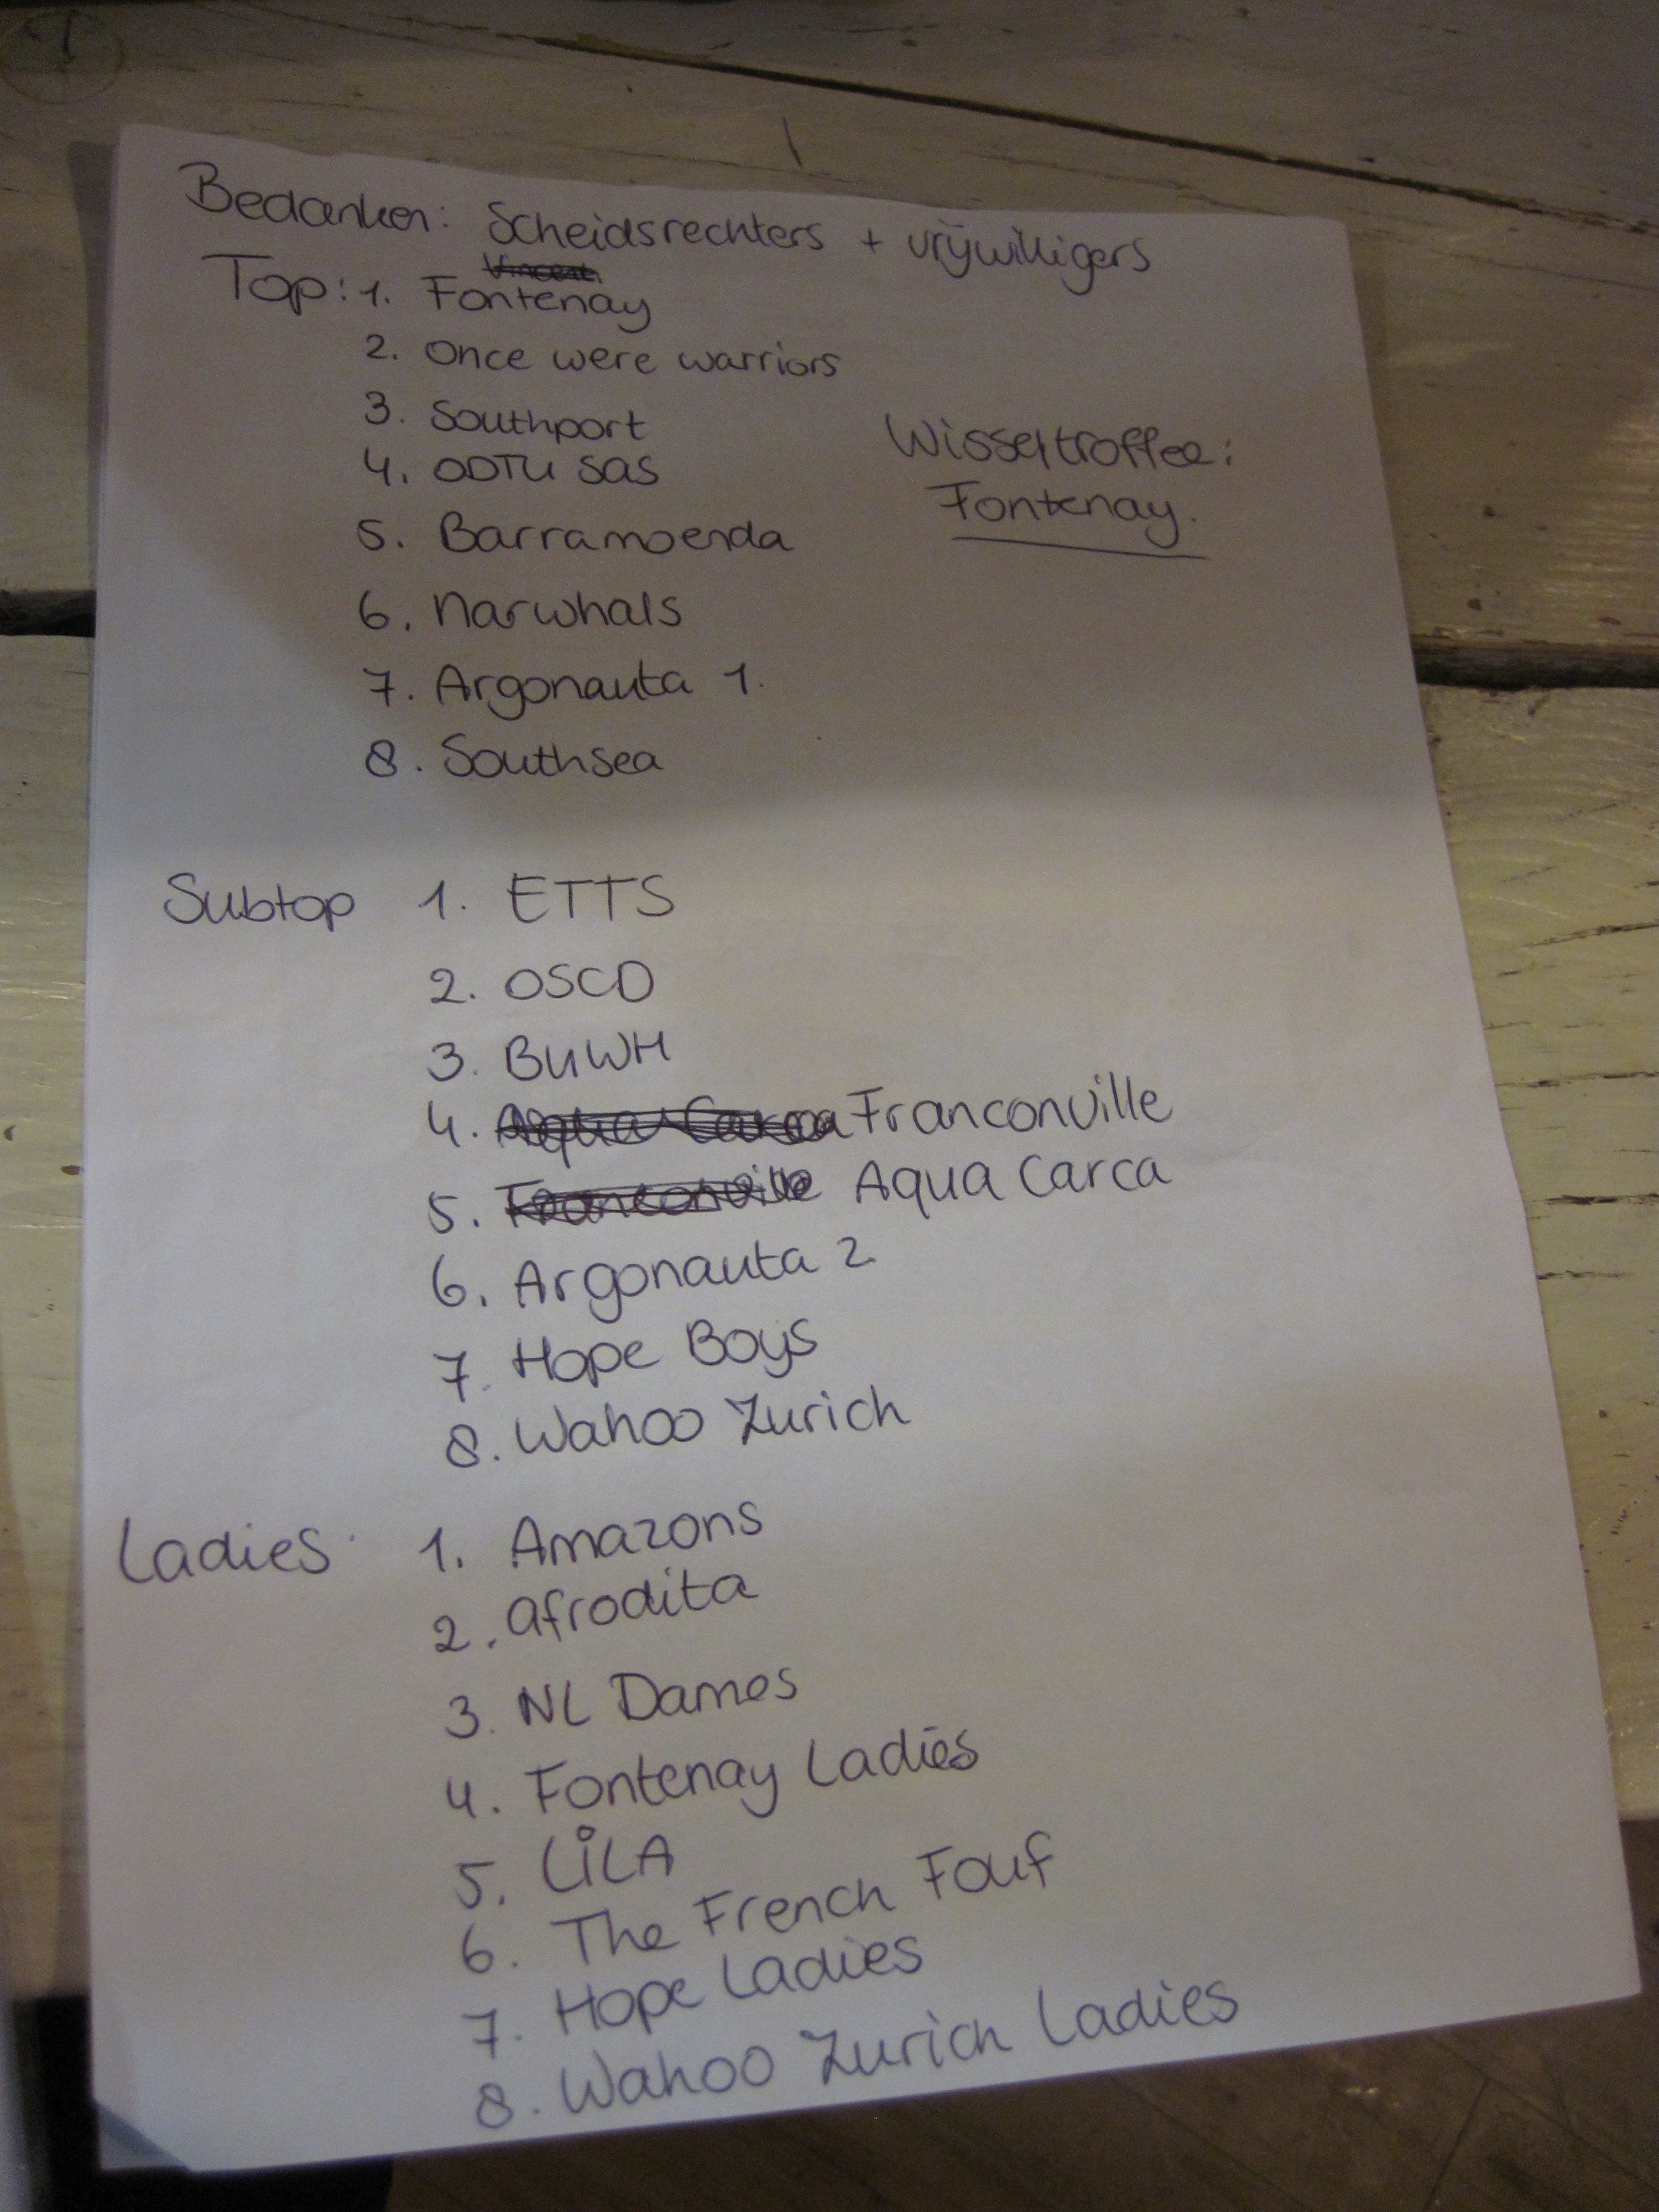 Bedanken: Scheidsrechters + vrijwilligers
Vincent
Top: 1. Fontenay
2. Once were warriors
3. Southport
4. ODTU SAS
5. Barramoenda
6. Narwhals
7. Argonauta 1.
8. Southsea
Wisseltroffee:
Fontenay.
Subtop 1. ETTS
2. OSCD
3. BUWH
4. Aqua Carca Franconville
5. Franconville Aqua Carca
6. Argonauta 2
7. Hope Boys
8. Wahoo Zurich
Ladies 1. Amazons
2. Afrodita
3. NL Dames
4. Fontenay Ladies
5. LiLA
6. The French Fouf
7. Hope Ladies
8. Wahoo Zurich Ladies